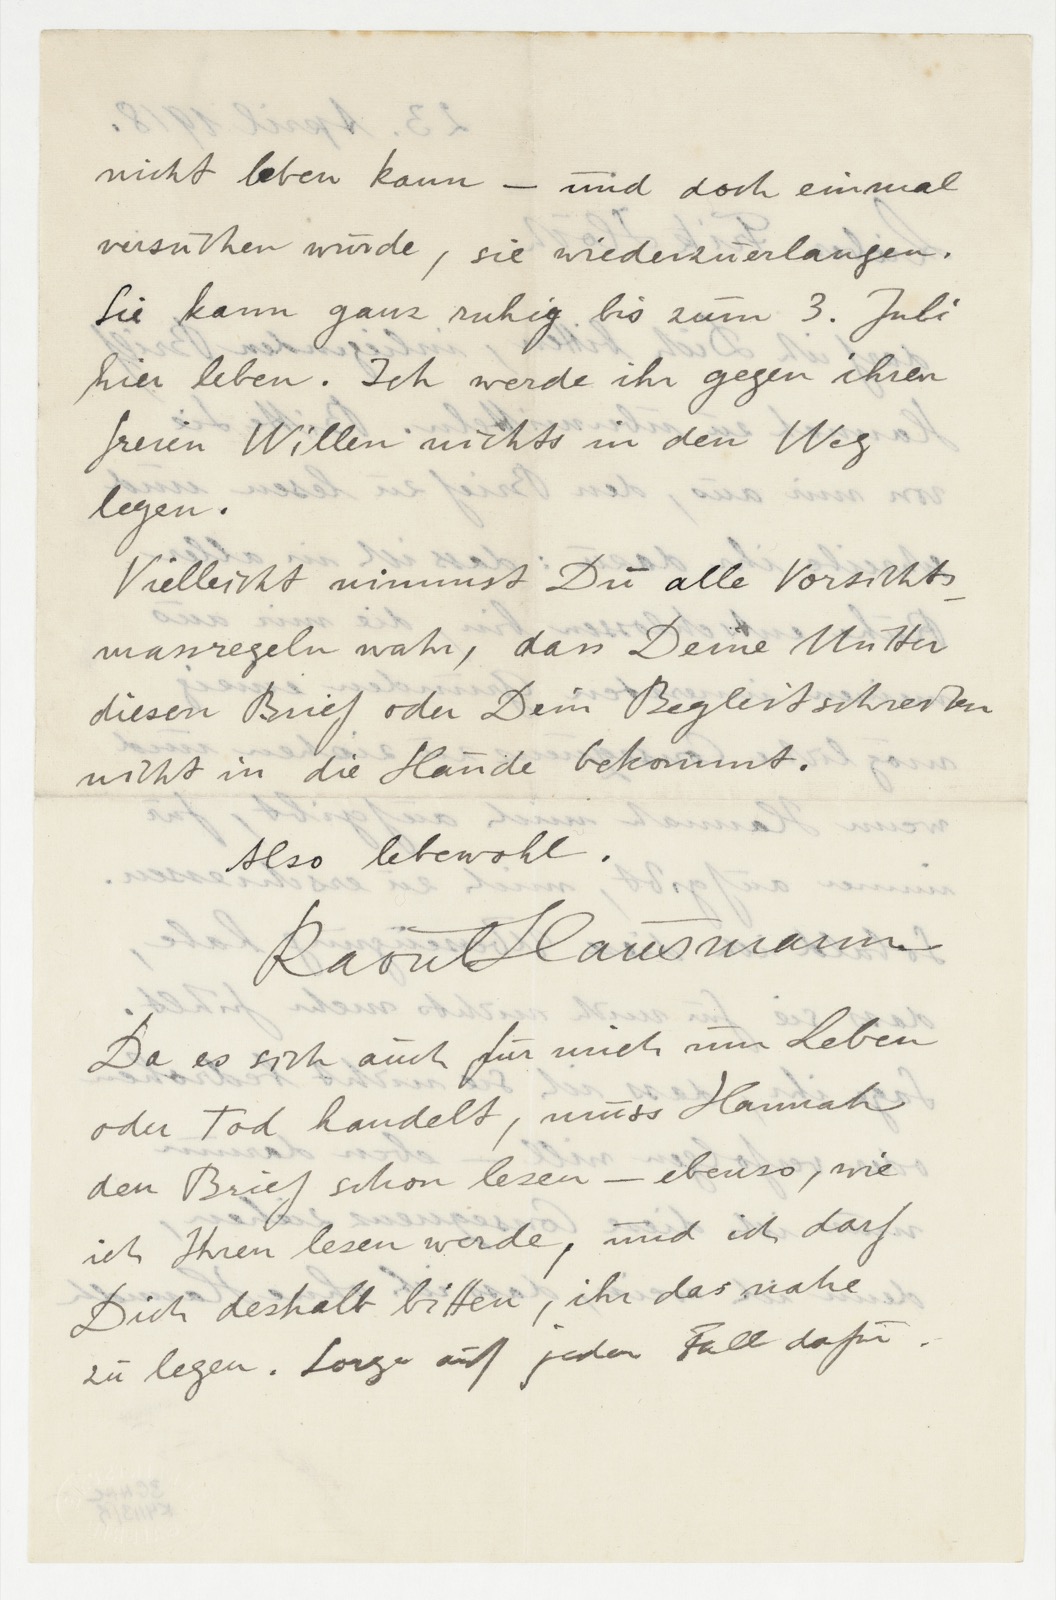 nicht leben kann – und doch einmal
versuchen würde, sie wiederzuerlangen.
Sie kann ganz ruhig bis zum 3. Juli
hier leben. Ich werde ihr gegen ihren
freien Willen nichts in den Weg
legen.
Vielleicht nimmst Du alle Vorsichts-
massregeln wahr, dass Deine Mutter
diesen Brief oder Dein Begleitschreiben
nicht in die Hände bekommt.
Also lebewohl.
Raoul Hausmann
Da es sich auch für mich um Leben
oder Tod handelt, muss Hannah
den Brief schon lesen – ebenso, wie
ich Ihren lesen werde, und ich darf
Dich deshalb bitten, ihr das nahe
zu legen. Sorge auf jeden Fall dafür.